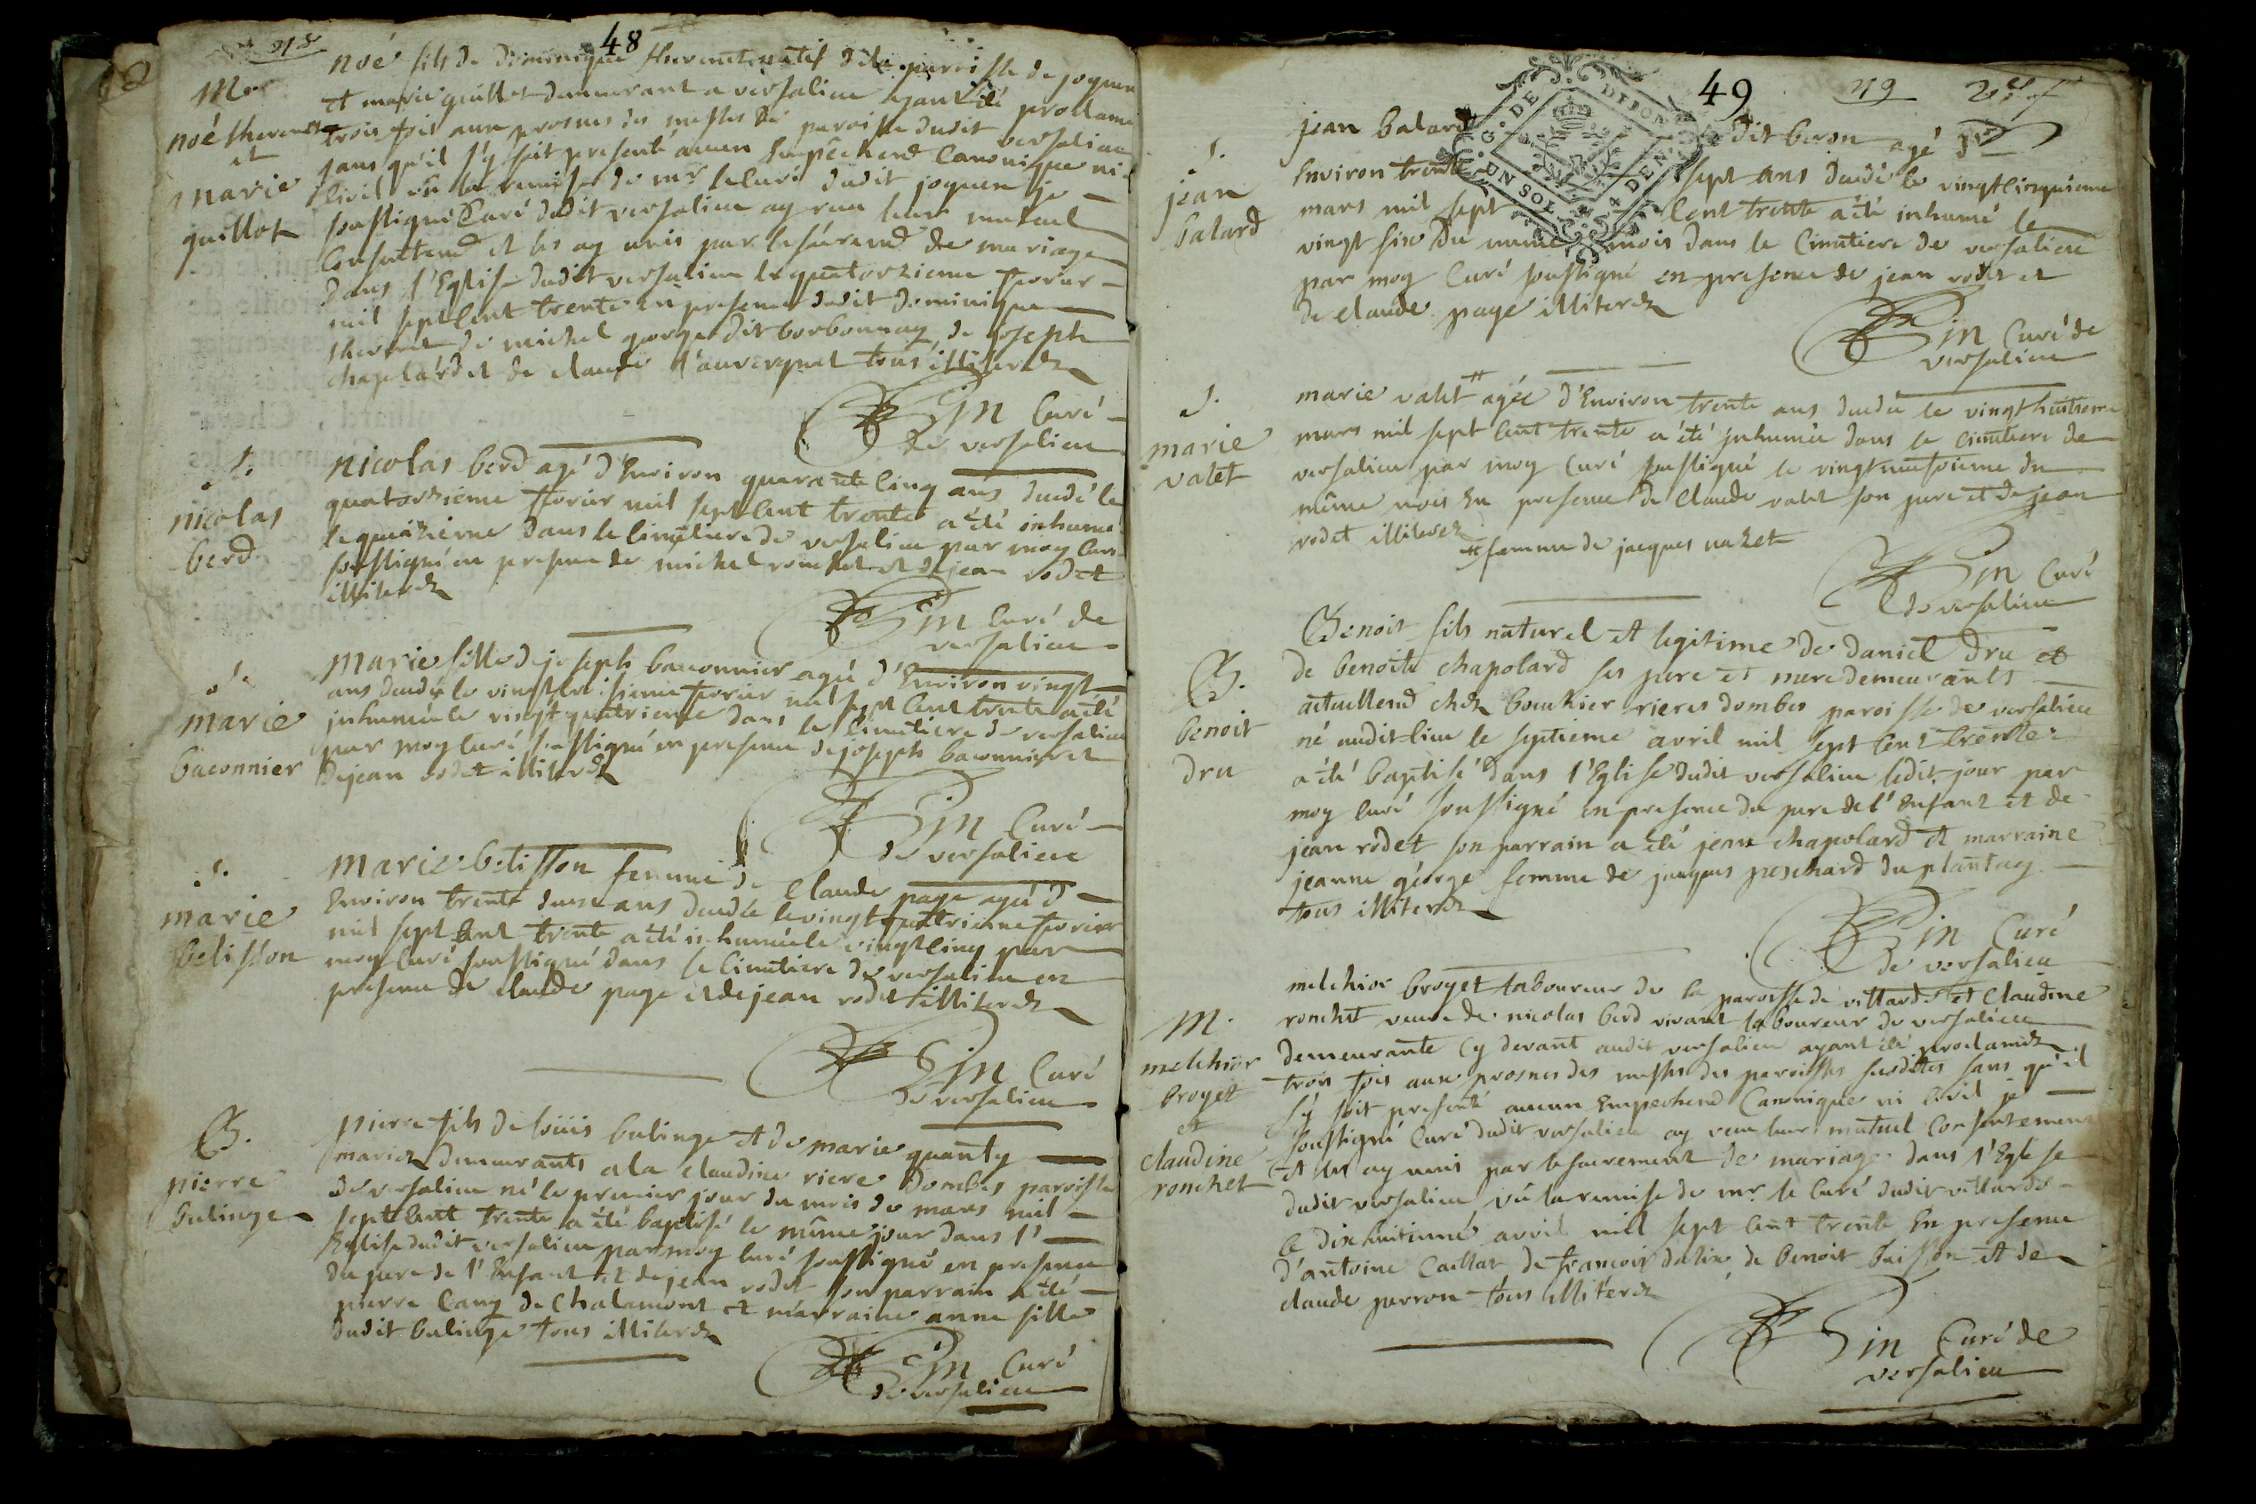 218
48
M.
noé thevenet
et
marie
guillot
noé fils de dominique thevenet natif de la paroisse de joyeux
et marie guillot demeurant a versalieu ayant été proclamé
trois fois aux prosnes des messes de paroisse dudit versalieu
sans qu'il s'y soit presenté aucun Empêchend Canonique ni
Civil vû la remise de mr. le Curé dudit joyeux je
soussigné Curé dudit versalieu ay reçu leur mutuel
Consentemd et les ay unis par le sacremd de mariage
dans l'Eglise dudit versalieu le quatorzieme fevrier
mil sept Cent trente en presence dudit dominique
thevenet de michel george dit borbonnay, de joseph
chapelard et de claude l'auvergnat tous illiterez
Curé
de versalieu
S.
nicolas
berd
nicolas berd agé d'Environ quarante Cinq ans decedé le
quatorzieme fevrier mil sept Cent trente a été inhumé
le quinzieme dans le Cimetiere de versalieu par moy Curé
soussigné en presence de michel ronchet et de jean rodet
illiterez
Curé de
versalieu
S.
marie
baconnier
marie fille de joseph baconnier agée d'Environ vingt
ans decedée le vingt troisieme fevrier mil sept Cent trente a été
inhumée le vingt quatrieme dans le Cimetiere de versalieu
par moy Curé soussigné en presence de joseph baconnier et
de jean rodet illiterez
Curé
de versalieu
S.
marie
belisson
marie belisson femme de claude page agée d'
Environ trente deux ans decedée le vingt quatrieme fevrier
mil sept Cent trente a été inhumée le vingt Cinq par
moy Curé soussigné dans le Cimetiere de versalieu en
presence de claude page et de jean rodet illiterez
Curé
de versalieu
B.
pierre
bulinge
pierre fils de loüis bulinge et de marie quanty
mariez demeurants a la claudine riere Dombes paroisse
de versalieu né le premier jour du mois de mars mil
sept Cent trente a été baptisé le même jour dans l'
Eglise dudit versalieu par moy Curé soussigné en presence
du pere de l'Enfant et de jean rodet son parrain a été
pierre Cany de Chalamont et marraine anne fille
dudit bulinge tous illiterez
Curé
de versalieu
49
219
G. DE DIJON
UN SOL 4 DEN.
S.
jean
balard
jean balard dit beron agé d'
Environ trente sept ans decedé le vingt Cinquieme
mars mil sept Cent trente a été inhumé le
vingt six du même mois dans le Cimetiere de versalieu
par moy Curé soussigné en presence de jean rodet et
de claude page illiterez
Curé de
versalieu
S.
marie
valet
marie valet # agée d'Environ trente ans decedée le vingt huitieme
mars mil sept Cent trente a été inhumée dans le Cimetiere de
versalieu par moy Curé soussigné le vingt neufvieme du
même mois En presence de Claude valet son pere et de jean
rodet illiterez
# femme de jacques nazet
Curé
de versalieu
B.
benoit
dru
Benoit fils naturel et legitime de daniel dru et
de benoite chapolard ses pere et mere demeurants
actuellemd chez bouchier rieres dombes paroisse de versalieu
né audit lieu le septieme avril mil sept Cent trente
a été baptisé dans l'Eglise dudit versalieu ledit jour par
moy Curé soussigné En presence du pere de l'Enfant et de
jean rodet son parrain a été jean chapolard et marraine
jeanne george femme de jacques peschard du plantay
tous illiterez
Curé
de versalieu
M.
melchior
broyet
et
claudine
ronchet
melchior broyet laboureur de la paroisse de villards et Claudine
ronchet veuve de nicolas berd vivant laboureur de versalieu
demeurante Cy devant audit versalieu ayant été proclamez
trois fois aux prosnes des messes des paroisses susdittes sans qu'il
s'y soit presenté aucun Empechemd Canonique ni Civil je
soussigné Curé dudit versalieu ay reçu leur mutuel Consentement
et les ay unis par le sacrement de mariage dans l'Eglise
dudit versalieu vû la remise de mr. le Curé dudit villards
le dixhuitieme avril mil sept Cent trente En presence
d'antoine Caillat de françois dalix de benoit buisson et de
claude perron tous illiterez
Curé de
versalieu